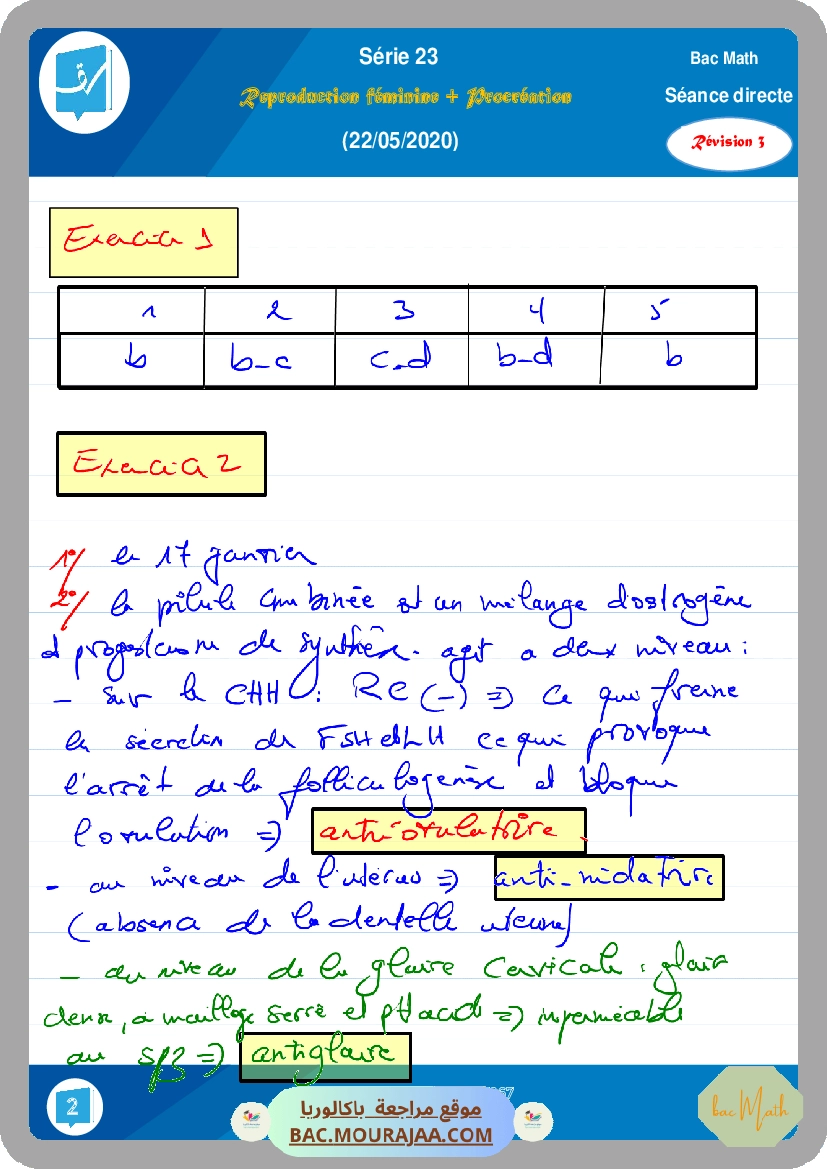 Série 23
Bac Math
Reproduction féminine + Procréation
Séance directe
(22/05/2020)
Révision 3
Exercice 1
1 2 3 4 5
b b-c c-d b-d b
Exercice 2
1°/ le 17 janvier
2°/ la pilule combinée est un mélange d'oestrogène
et progestérone de synthèse. agit a deux niveau :
- sur le CHH : RC (-) => ce qui freine
la sécretion de FSH et LH ce qui provoque
l'arrêt de la folliculogenèse et bloque
l'ovulation => anti-ovulatoire.
- au niveau de l'uterus => anti-nidatrice
(absence de la dentelle uterine)
- au niveau de la glaire cervicale : glaire
dense, a maillage serré et pH acid => impermeable
au spz => antiglaire
2
موقع مراجعة باكالوريا
BAC.MOURAJAA.COM
bac Math